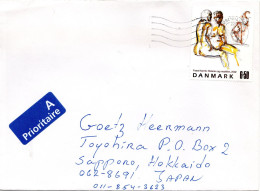 DANMARK 6.50
A
Prioritaire
Goetz Heermann
Toyohira P.O. Box 2
Sapporo, Hokkaido
062-8691 JAPAN
011-854-3623